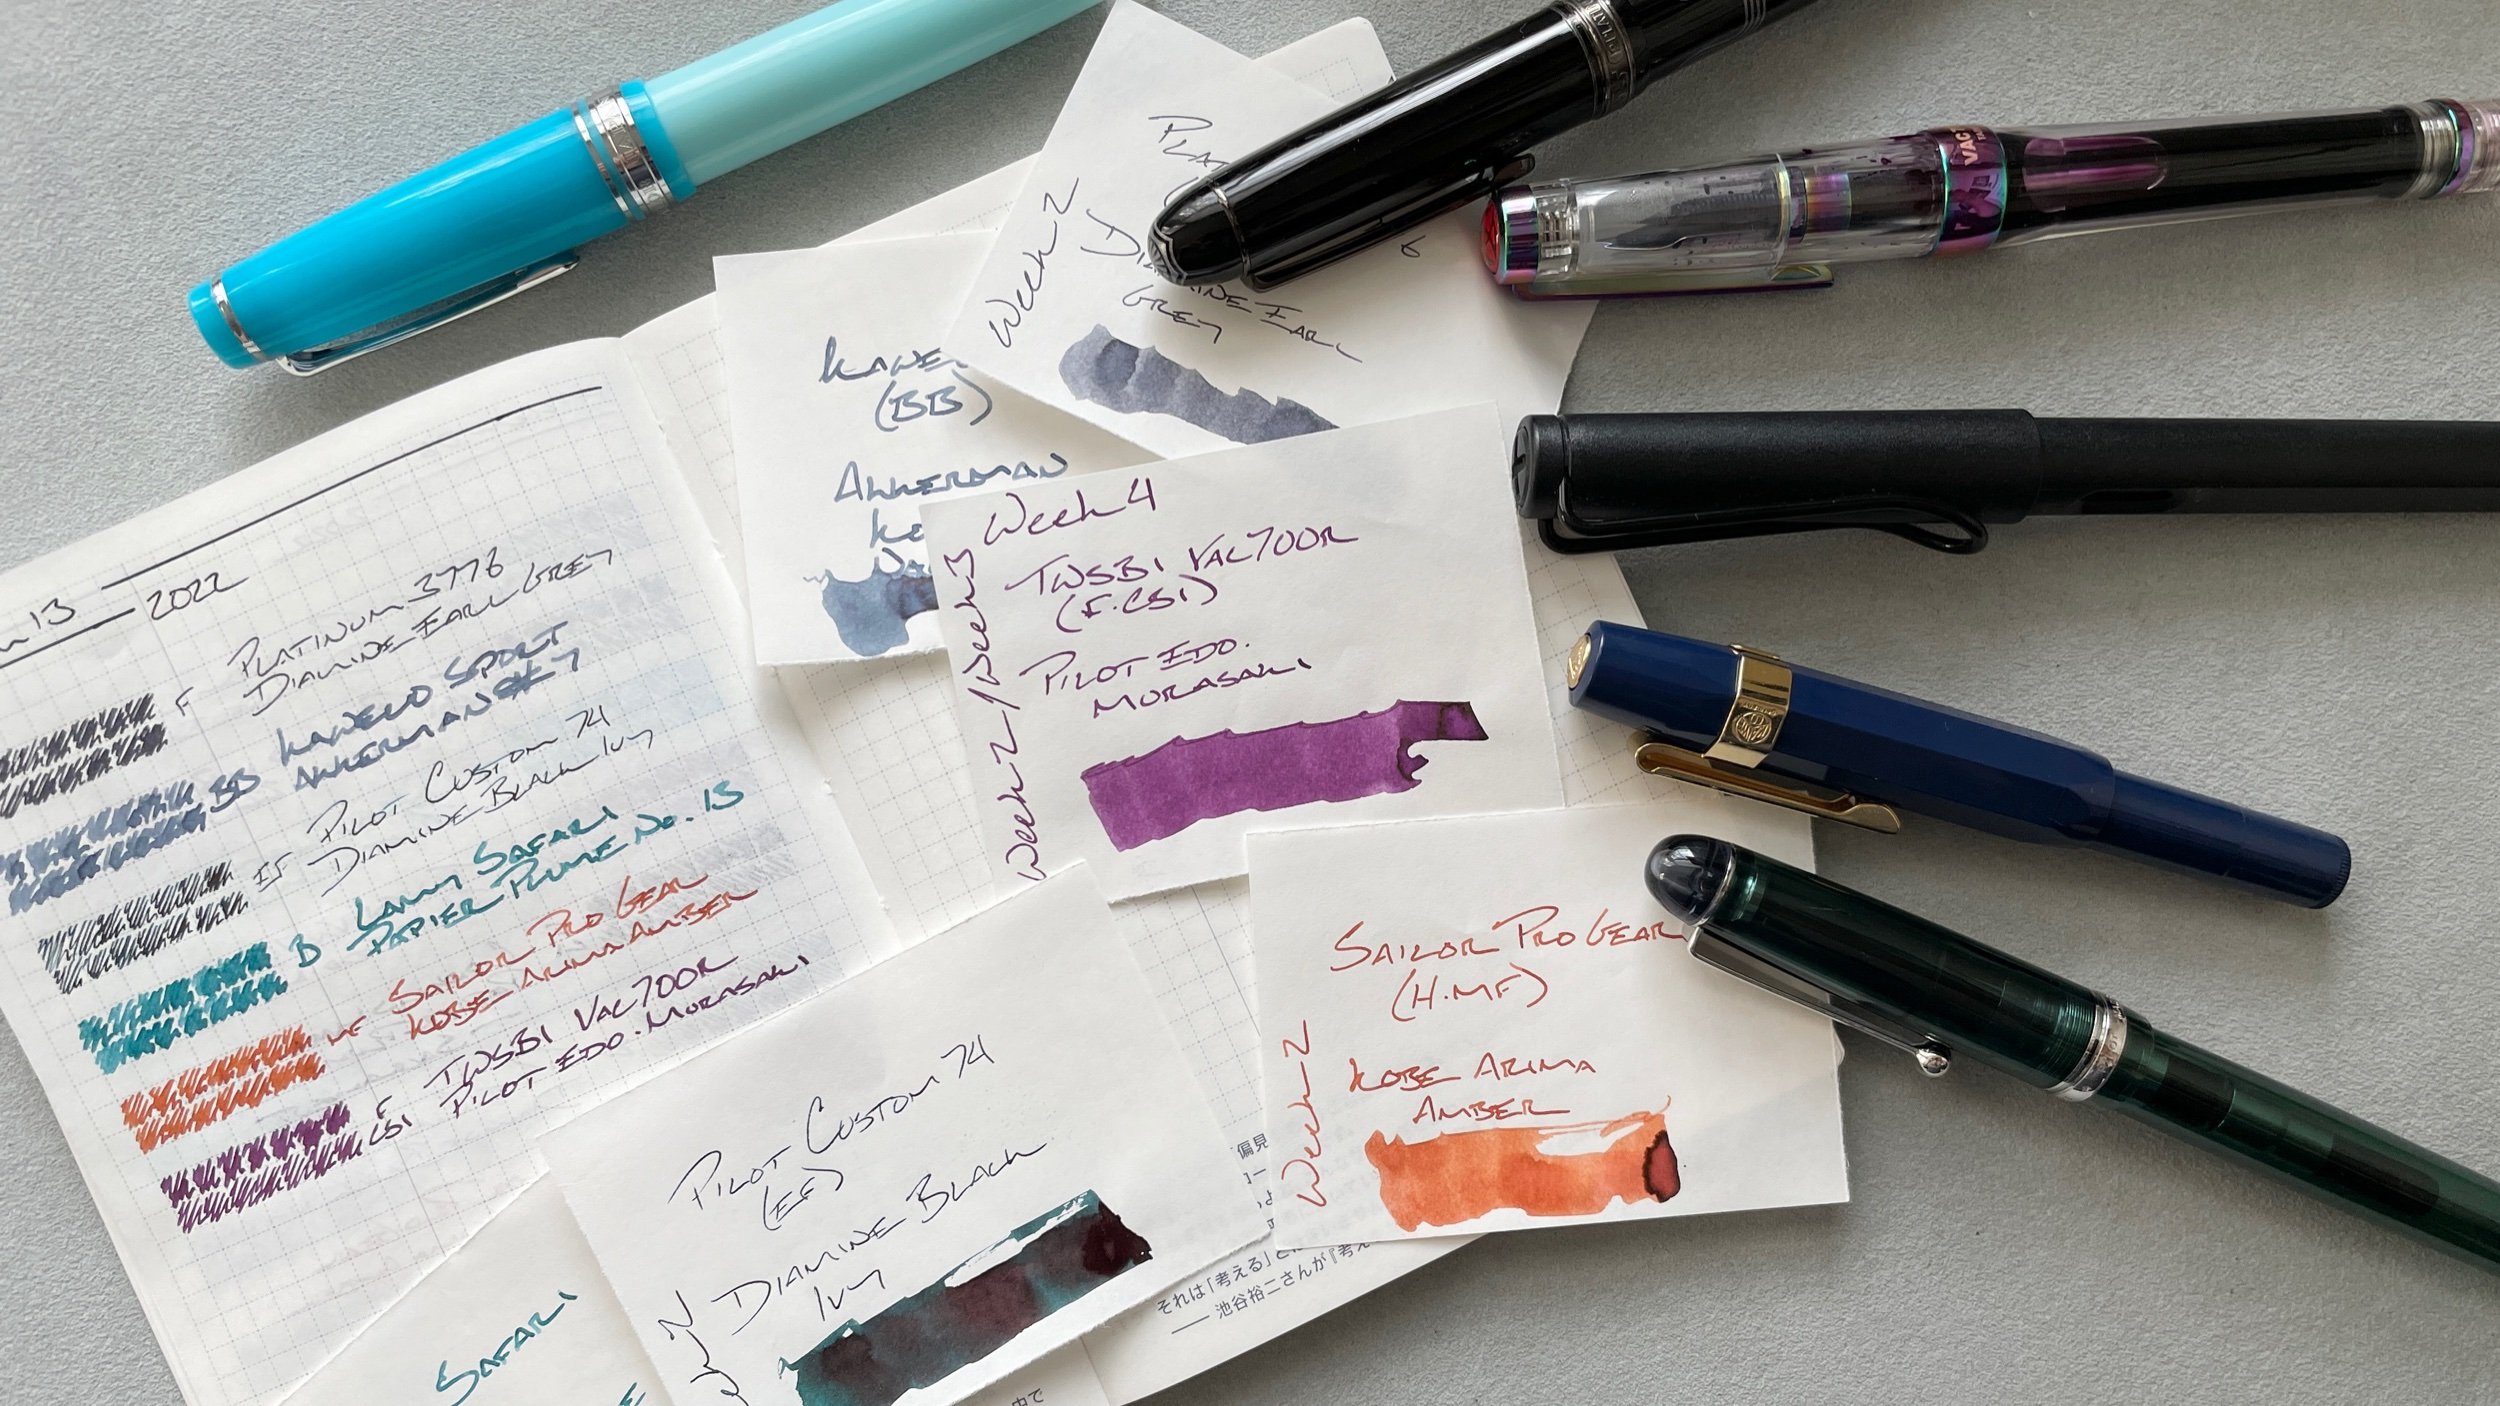 13
2022
F PLATINUM 3776
DIAMINE EARL GREY
BB KAWECO SPORT
AKKERMAN #7
EF PILOT CUSTOM 74
DIAMINE BLACK IVY
B LAMY SAFARI
PAPIER PLUME NO. 13
MF SAILOR PRO GEAR
KOBE ARIMA AMBER
F TWSBI VAC700R
CSI PILOT EDO. MURASAKI
(BB)
AKKERMAN
Week 2
DIAMINE EARL
GREY
Week 4
Week 2/Week 3
TWSBI VAC700R
(F.CSI)
PILOT EDO.
MURASAKI
SAILOR PRO GEAR
(H.MF)
Week 2
KOBE ARIMA
AMBER
PILOT CUSTOM 74
(EF)
DIAMINE BLACK
IVY
SAFARI
偏見
それは「考える」と
—— 池谷裕二さんが『考え
中で
VAC